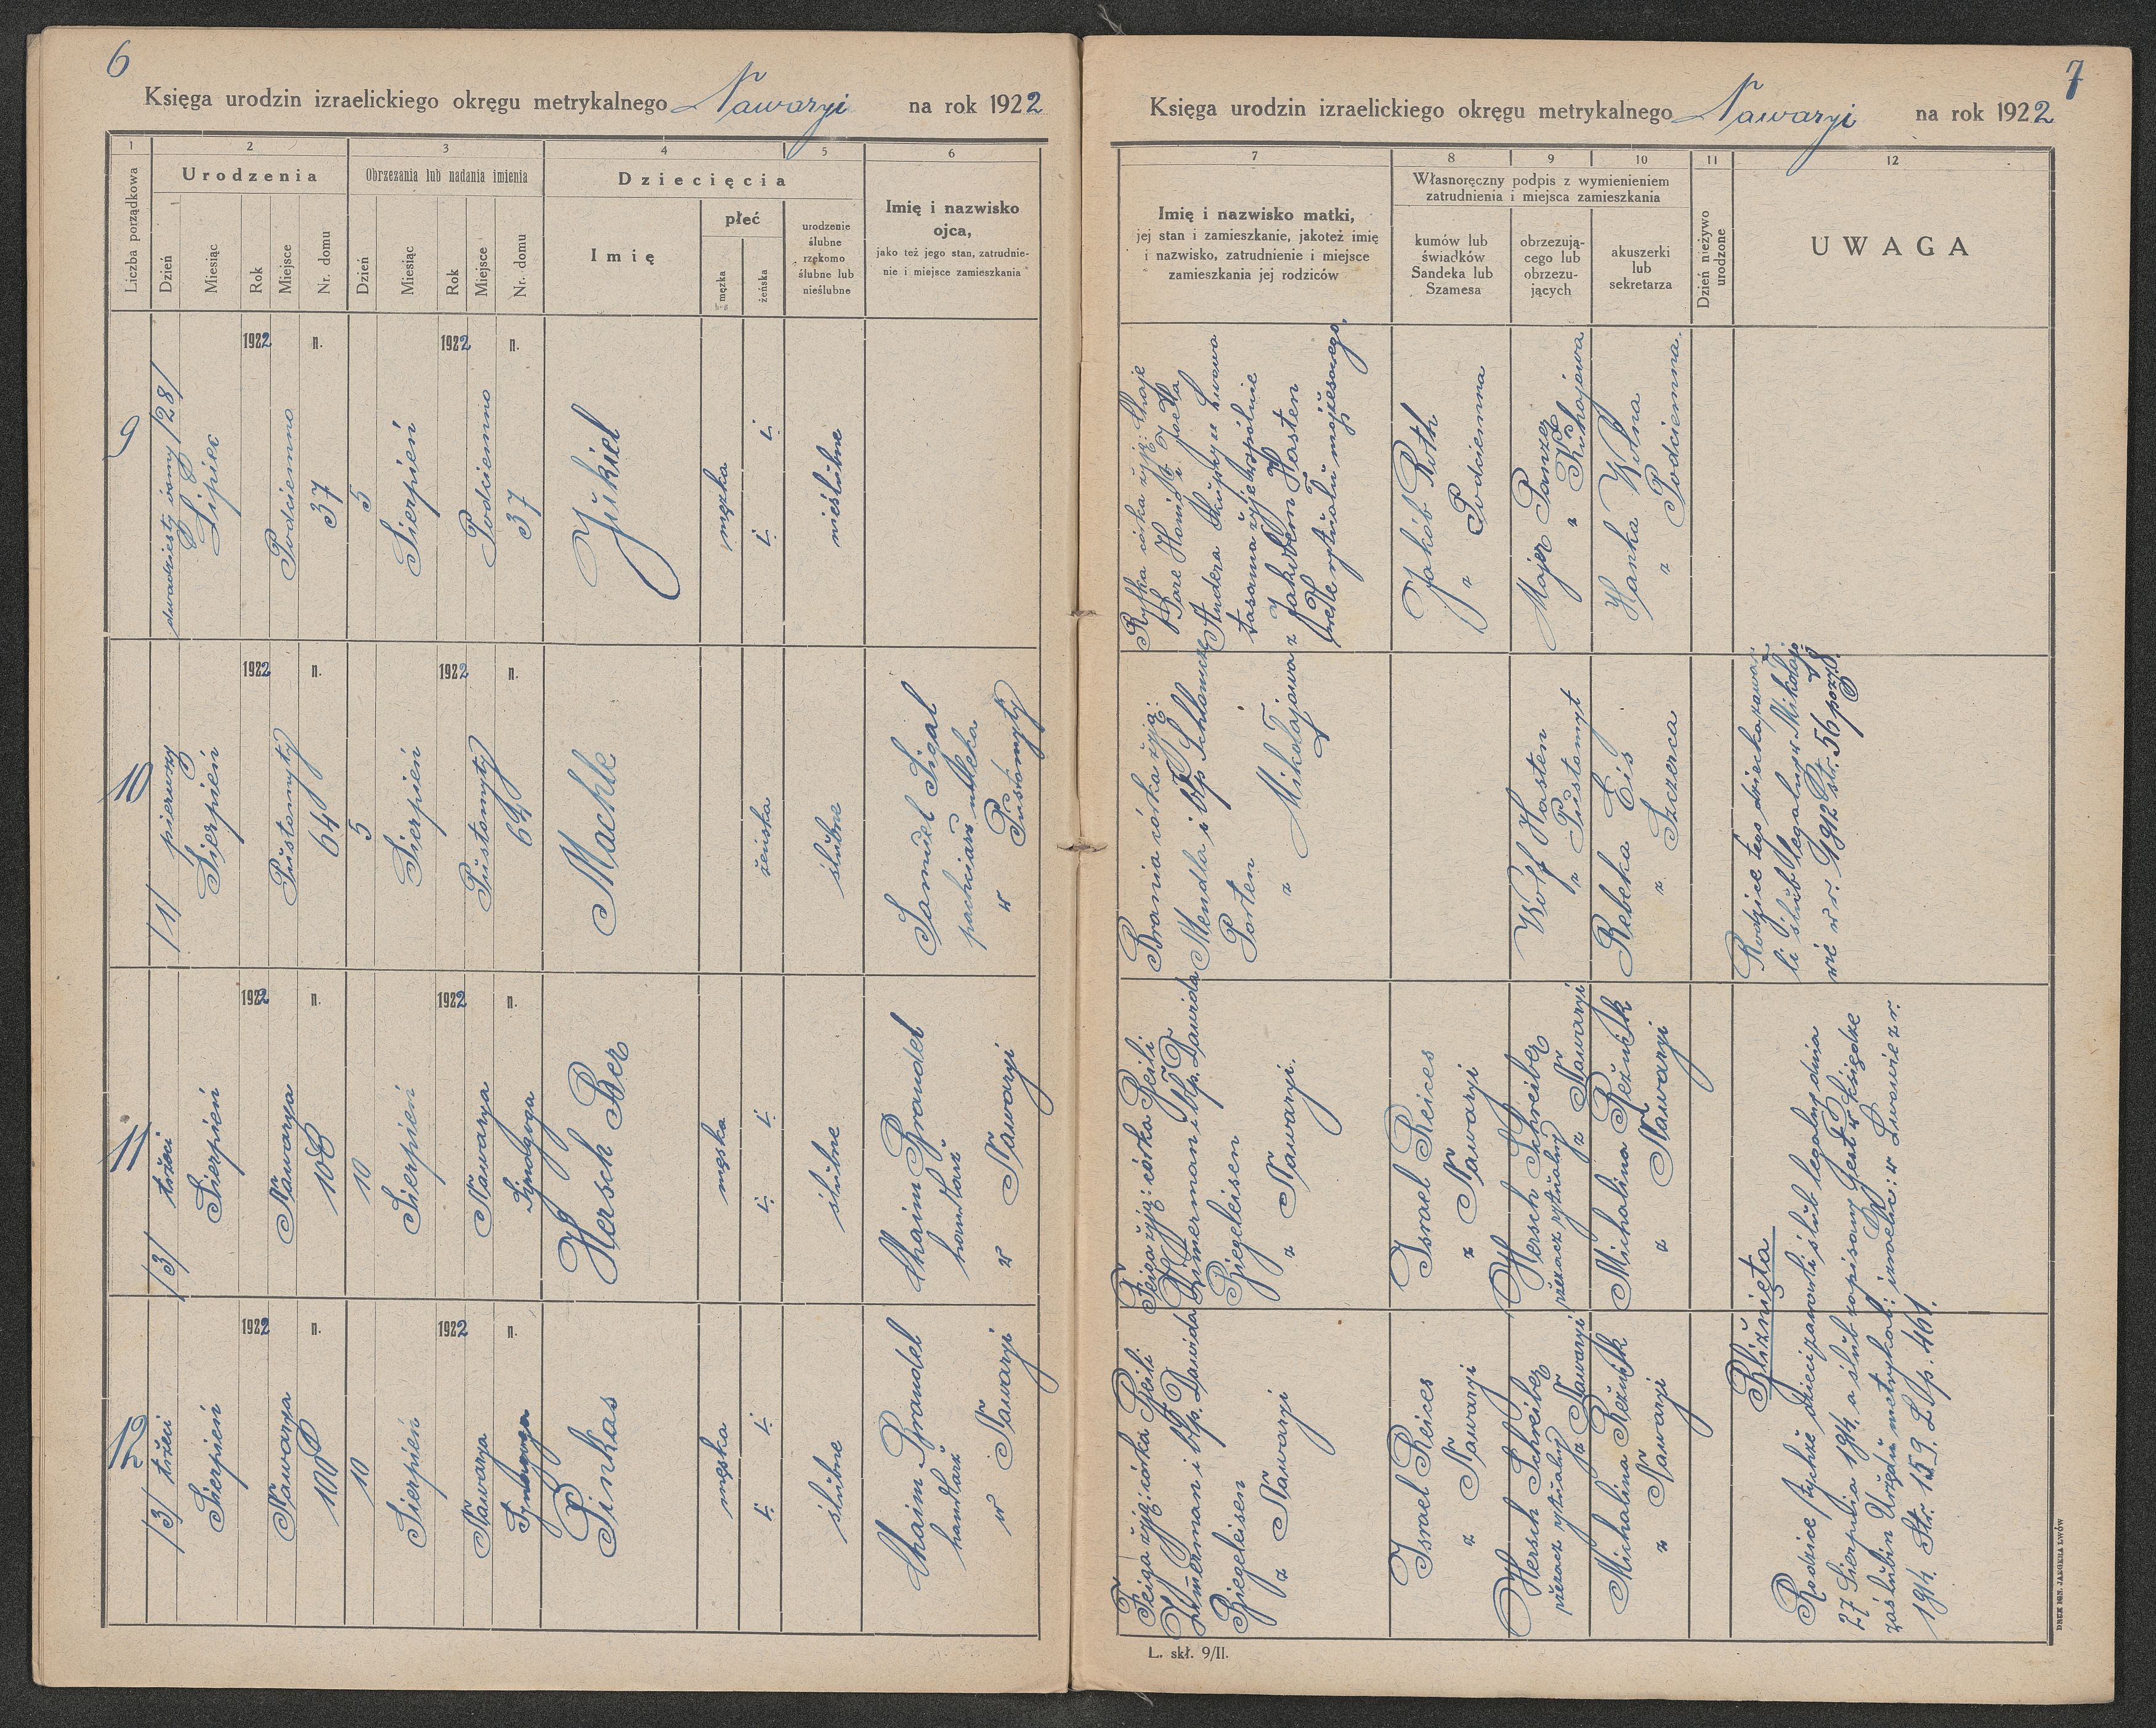 6
Księga urodzin izraelickiego okręgu metrykalnego Nawaryi na rok 1922
1
2
3
4
5
6
Liczba porządkowa
Urodzenia
Obrzezania lub nadania imienia
Dziecięcia
Imię i nazwisko
ojca,
jako też jego stan, zatrudnie-
nie i miejsce zamieszkania
Dzień
Miesiąc
Rok
Miejsce
Nr. domu
Dzień
Miesiąc
Rok
Miejsce
Nr. domu
Imię
płeć
męzka
żeńska
urodzenie
ślubne
rzekomo
ślubne lub
nieślubne
9
dwudziesty ósmy /28/
Lipiec
1922
Podciemno
n.
37
5
Sierpień
1922
Podciemno
n.
37
Jukiel
męzka
nieślubne
10
/1/ pierwszy
Sierpień
1922
Pustomyty
n.
64
5
Sierpień
1922
Pustomyty
n.
64
Machle
żeńska
ślubne
Samuel Sigal
pachciarz mleka
w Pustomyty
11
/3/ trzeci
Sierpień
1922
Nawarya
n.
10
Sierpień
1922
Nawarya
n.
Synagoga
Hersch Ber
męska
ślubne
Chaim Brandel
handlarz
w Nawaryi
12
/3/ trzeci
Sierpień
1922
Nawarya
n.
10
Sierpień
1922
Nawarya
n.
Synagoga
Pinkas
męska
ślubne
Chaim Brandel
handlarz
w Nawaryi
7
Księga urodzin izraelickiego okręgu metrykalnego Nawaryi na rok 1922
7
8
9
10
11
12
Imię i nazwisko matki,
jej stan i zamieszkanie, jakoteż imię
i nazwisko, zatrudnienie i miejsce
zamieszkania jej rodziców
Własnoręczny podpis z wymienieniem
zatrudnienia i miejsca zamieszkania
kumów lub
świadków
Sandeka lub
Szamesa
obrzezują-
cego lub
obrzezu-
jących
akuszerki
lub
sekretarza
Dzień nieżywo
urodzone
UWAGA
Ryfka córka żyją:
wspólnie
z Jakubem Hasten
rytuału mojżeszowego.
Jakób Roth
z Podciemna
Majer Panzer
z
Hanka Wolna
z Podciemna.
Brania córka żyją:
Mendla i błp
Porten
z Mikołajowa
Wolf Hasten
z Pustomyt
Rebeka Eis
z Szczerca
Rodzice tego dziecka zawar-
li ślub legalny w Mikołajo-
wie w r. 1912 Str. 56 poz. 8.
Feiga żyją: córka Beili
Zimerman i błp. Dawida
Ziegeleisen
z Nawaryi.
Israel Reices
z Nawaryi
Hersch Schreiber
rzezacz rytualny
z Nawaryi
Michalina
z Nawaryi
Feiga żyją: córka Beili
Zimmerman i błp. Dawida
Ziegeleisen
z Nawaryi
Israel Reices
z Nawaryi
Hersch Schreiber
rzezacz rytualny
z Nawaryi
Michalina
z Nawaryi
Bliźnięta
Rodzice tychże dzieci zawarli ślub legalny dnia
27 Sierpnia 1914. a ślub zapisany jest w księdze
zaślubin Urzędu metrykal: izraelic: w Lwowie z r.
1914. Str. 159. L. p. 461.
L. skł. 9/II.
DRUK IGN. JAEGERA LWÓW